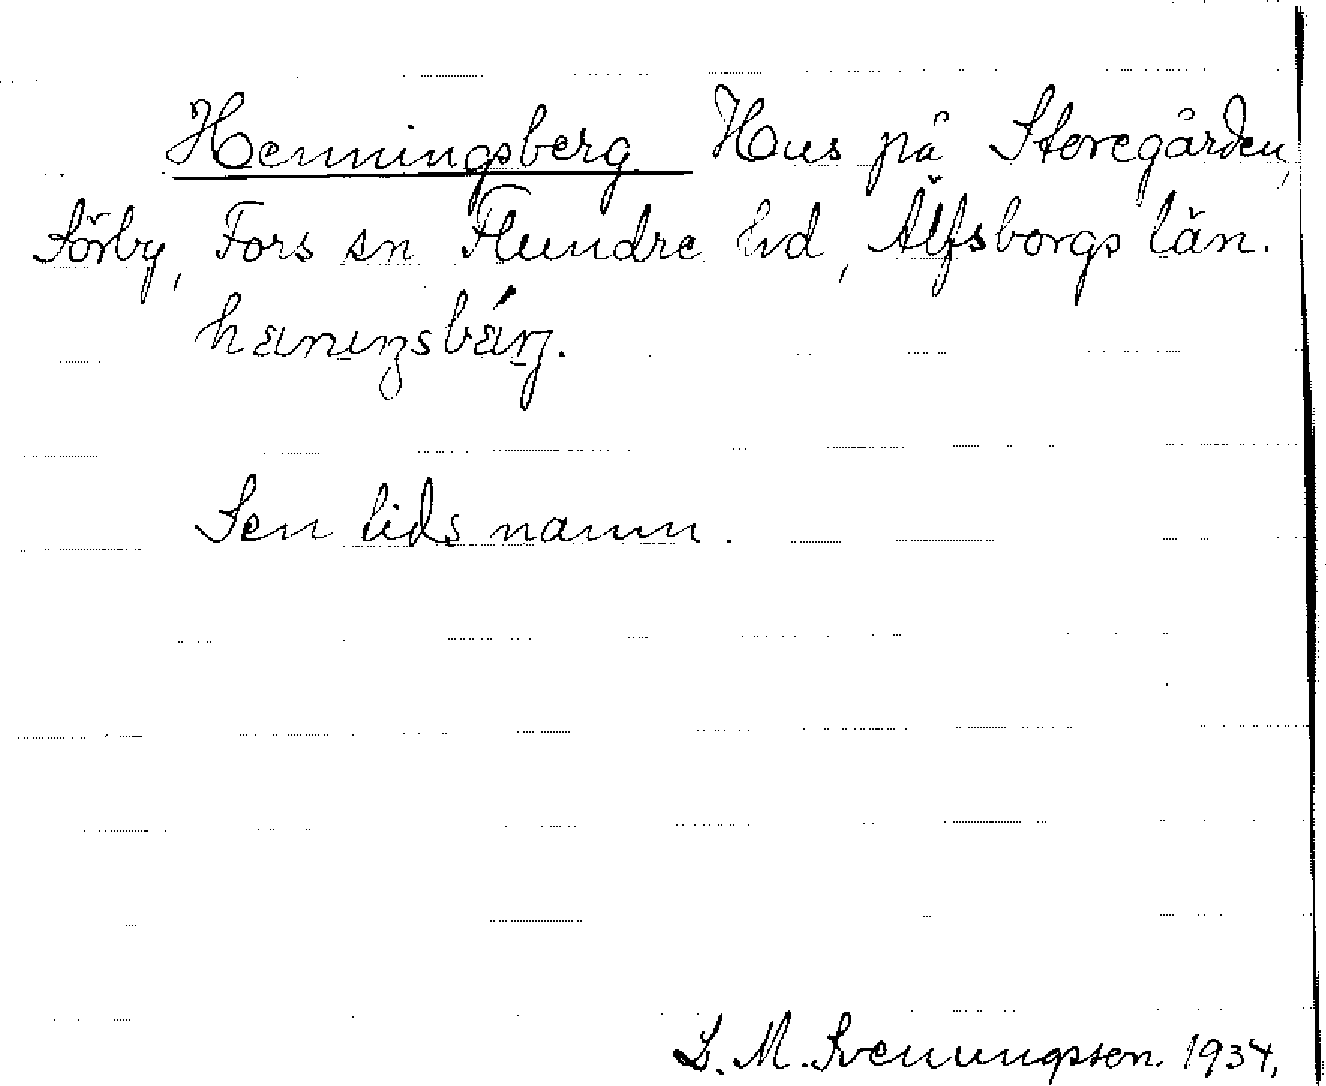 Henningsberg Hus på Storegården,
Sörby, Fors sn Flundre hd, Älfsborgs län.
hæningsbǽrg.
Sen tids namn.
S. M. Svenungsson. 1934.